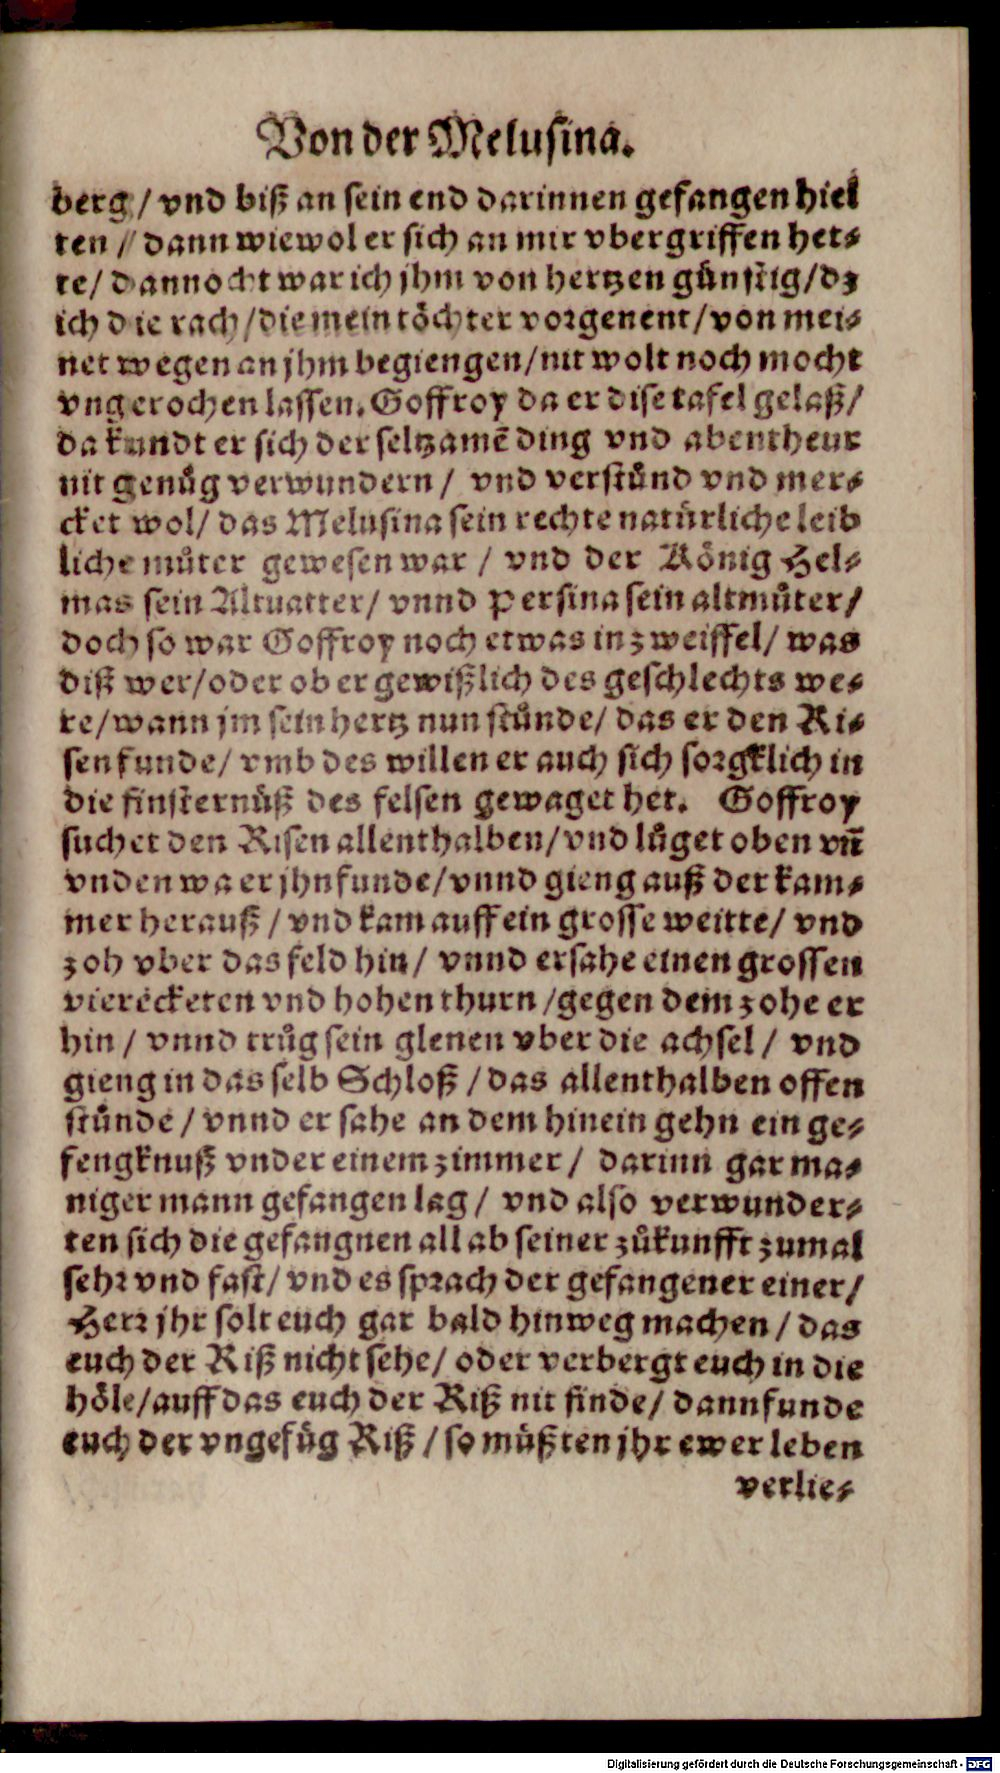 Von der Melusina.
berg / vnd biß an sein end darinnen gefangen hiel
ten / dann wiewol er sich an mir vbergriffen het⸗
te / dannocht war ich jhm von hertzen günstig / dz
ich die rach / die mein töchter vorgenent / von mei⸗
net wegen an jhm begiengen / nit wolt noch mocht
vngerochen lassen. Goffroy da er dise tafel gelaß /
da kundt er sich der seltzamē ding vnd abentheur
nit genůg verwundern / vnd verstůnd vnd mer⸗
cket wol / das Melusina sein rechte natürliche leib
liche můter gewesen war / vnd der König Hel⸗
mas sein Altuatter / vnnd Persina sein altmůter /
doch so war Goffroy noch etwas in zweiffel / was
diß wer / oder ob er gewißlich des geschlechts we⸗
re / wann jm sein hertz nun stůnde / das er den Ri⸗
sen funde / vmb des willen er auch sich sorgklich in
die finsternüß des felsen gewaget het. Goffroy
suchet den Risen allenthalben / vnd lůget oben vñ
vnden wa er jhn funde / vnnd gieng auß der kam⸗
mer herauß / vnd kam auff ein grosse weitte / vnd
zoh vber das feld hin / vnnd ersahe einen grossen
viereckecketen vnd hohen thurn / gegen dem zohe er
hin / vnnd trůg sein glenen vber die achsel / vnd
gieng in das selb Schloß / das allenthalben offen
stůnde / vnnd er sahe an dem hinein gehn ein ge⸗
fengknuß vnder einem zimmer / darinn gar ma⸗
niger mann gefangen lag / vnd also verwunder⸗
ten sich die gefangnen all ab seiner zůkunfft zumal
sehr vnd fast / vnd es sprach der gefangener einer /
Herr jhr solt euch gar bald hinweg machen / das
euch der Riß nicht sehe / oder verbergt euch in die
höle / auff das euch der Riß nit finde / dann funde
euch der vngefüg Riß / so müßten jhr ewer leben
verlie⸗
Digitalisierung gefördert durch die Deutsche Forschungsgemeinschaft - DFG